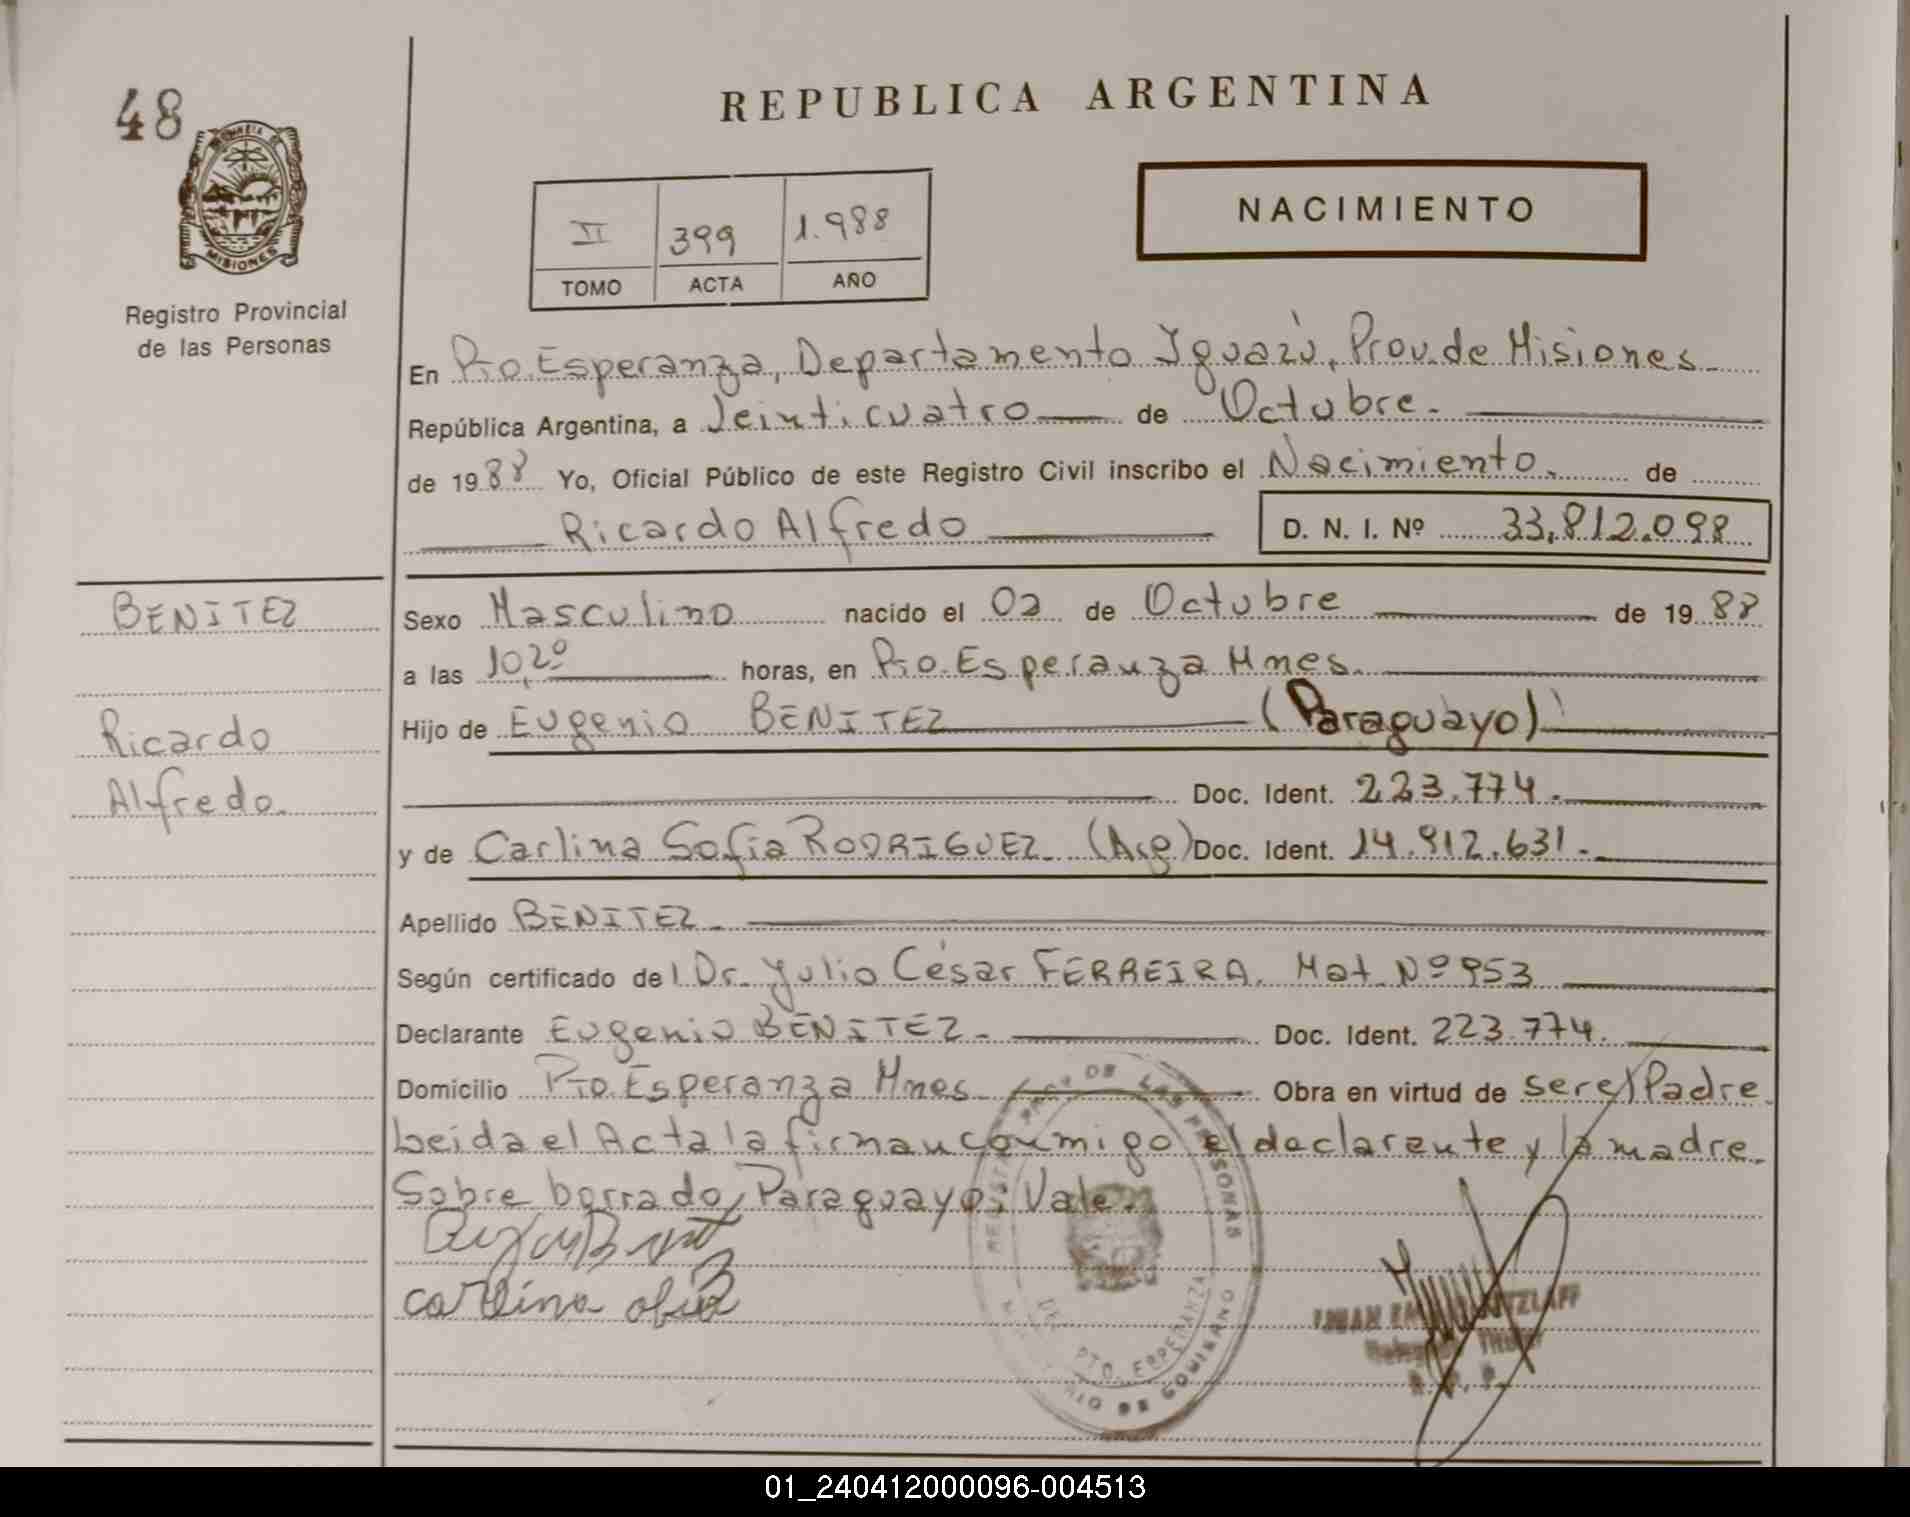 48
REPUBLICA ARGENTINA
PROVINCIA DE
MISIONES
Registro Provincial
de las Personas
NACIMIENTO
II 399 1.988
TOMO ACTA AÑO
En Pto. Esperanza, Departamento Iguazú, Prov. de Misiones
República Argentina, a Veinticuatro de Octubre.
de 1988 Yo, Oficial Público de este Registro Civil inscribo el Nacimiento. de
Ricardo Alfredo D. N. I. Nº 33,812.098
BENITEZ
Ricardo
Alfredo.
Sexo Masculino nacido el 02 de Octubre de 1988
a las 10,20 horas, en Pto. Esperanza Mnes.
Hijo de Eugenio BENITEZ (Paraguayo)
Doc. Ident. 223.774.
y de Carlina Sofia RODRIGUEZ. (Arg) Doc. Ident. 14.912.631.
Apellido BENITEZ.
Según certificado del Dr. Julio César FERREIRA. Mat. Nº 953
Declarante Eugenio BENITEZ. Doc. Ident. 223.774.
Domicilio Pto. Esperanza Mnes. Obra en virtud de ser el Padre.
Leida el Acta la firman conmigo el declarante y la madre.
Sobre borrado, Paraguayo: Vale.
Carlina ofia
DE LAS PERSONAS
PTO. ESPERANZA
DE GOBIERNO
01_240412000096-004513